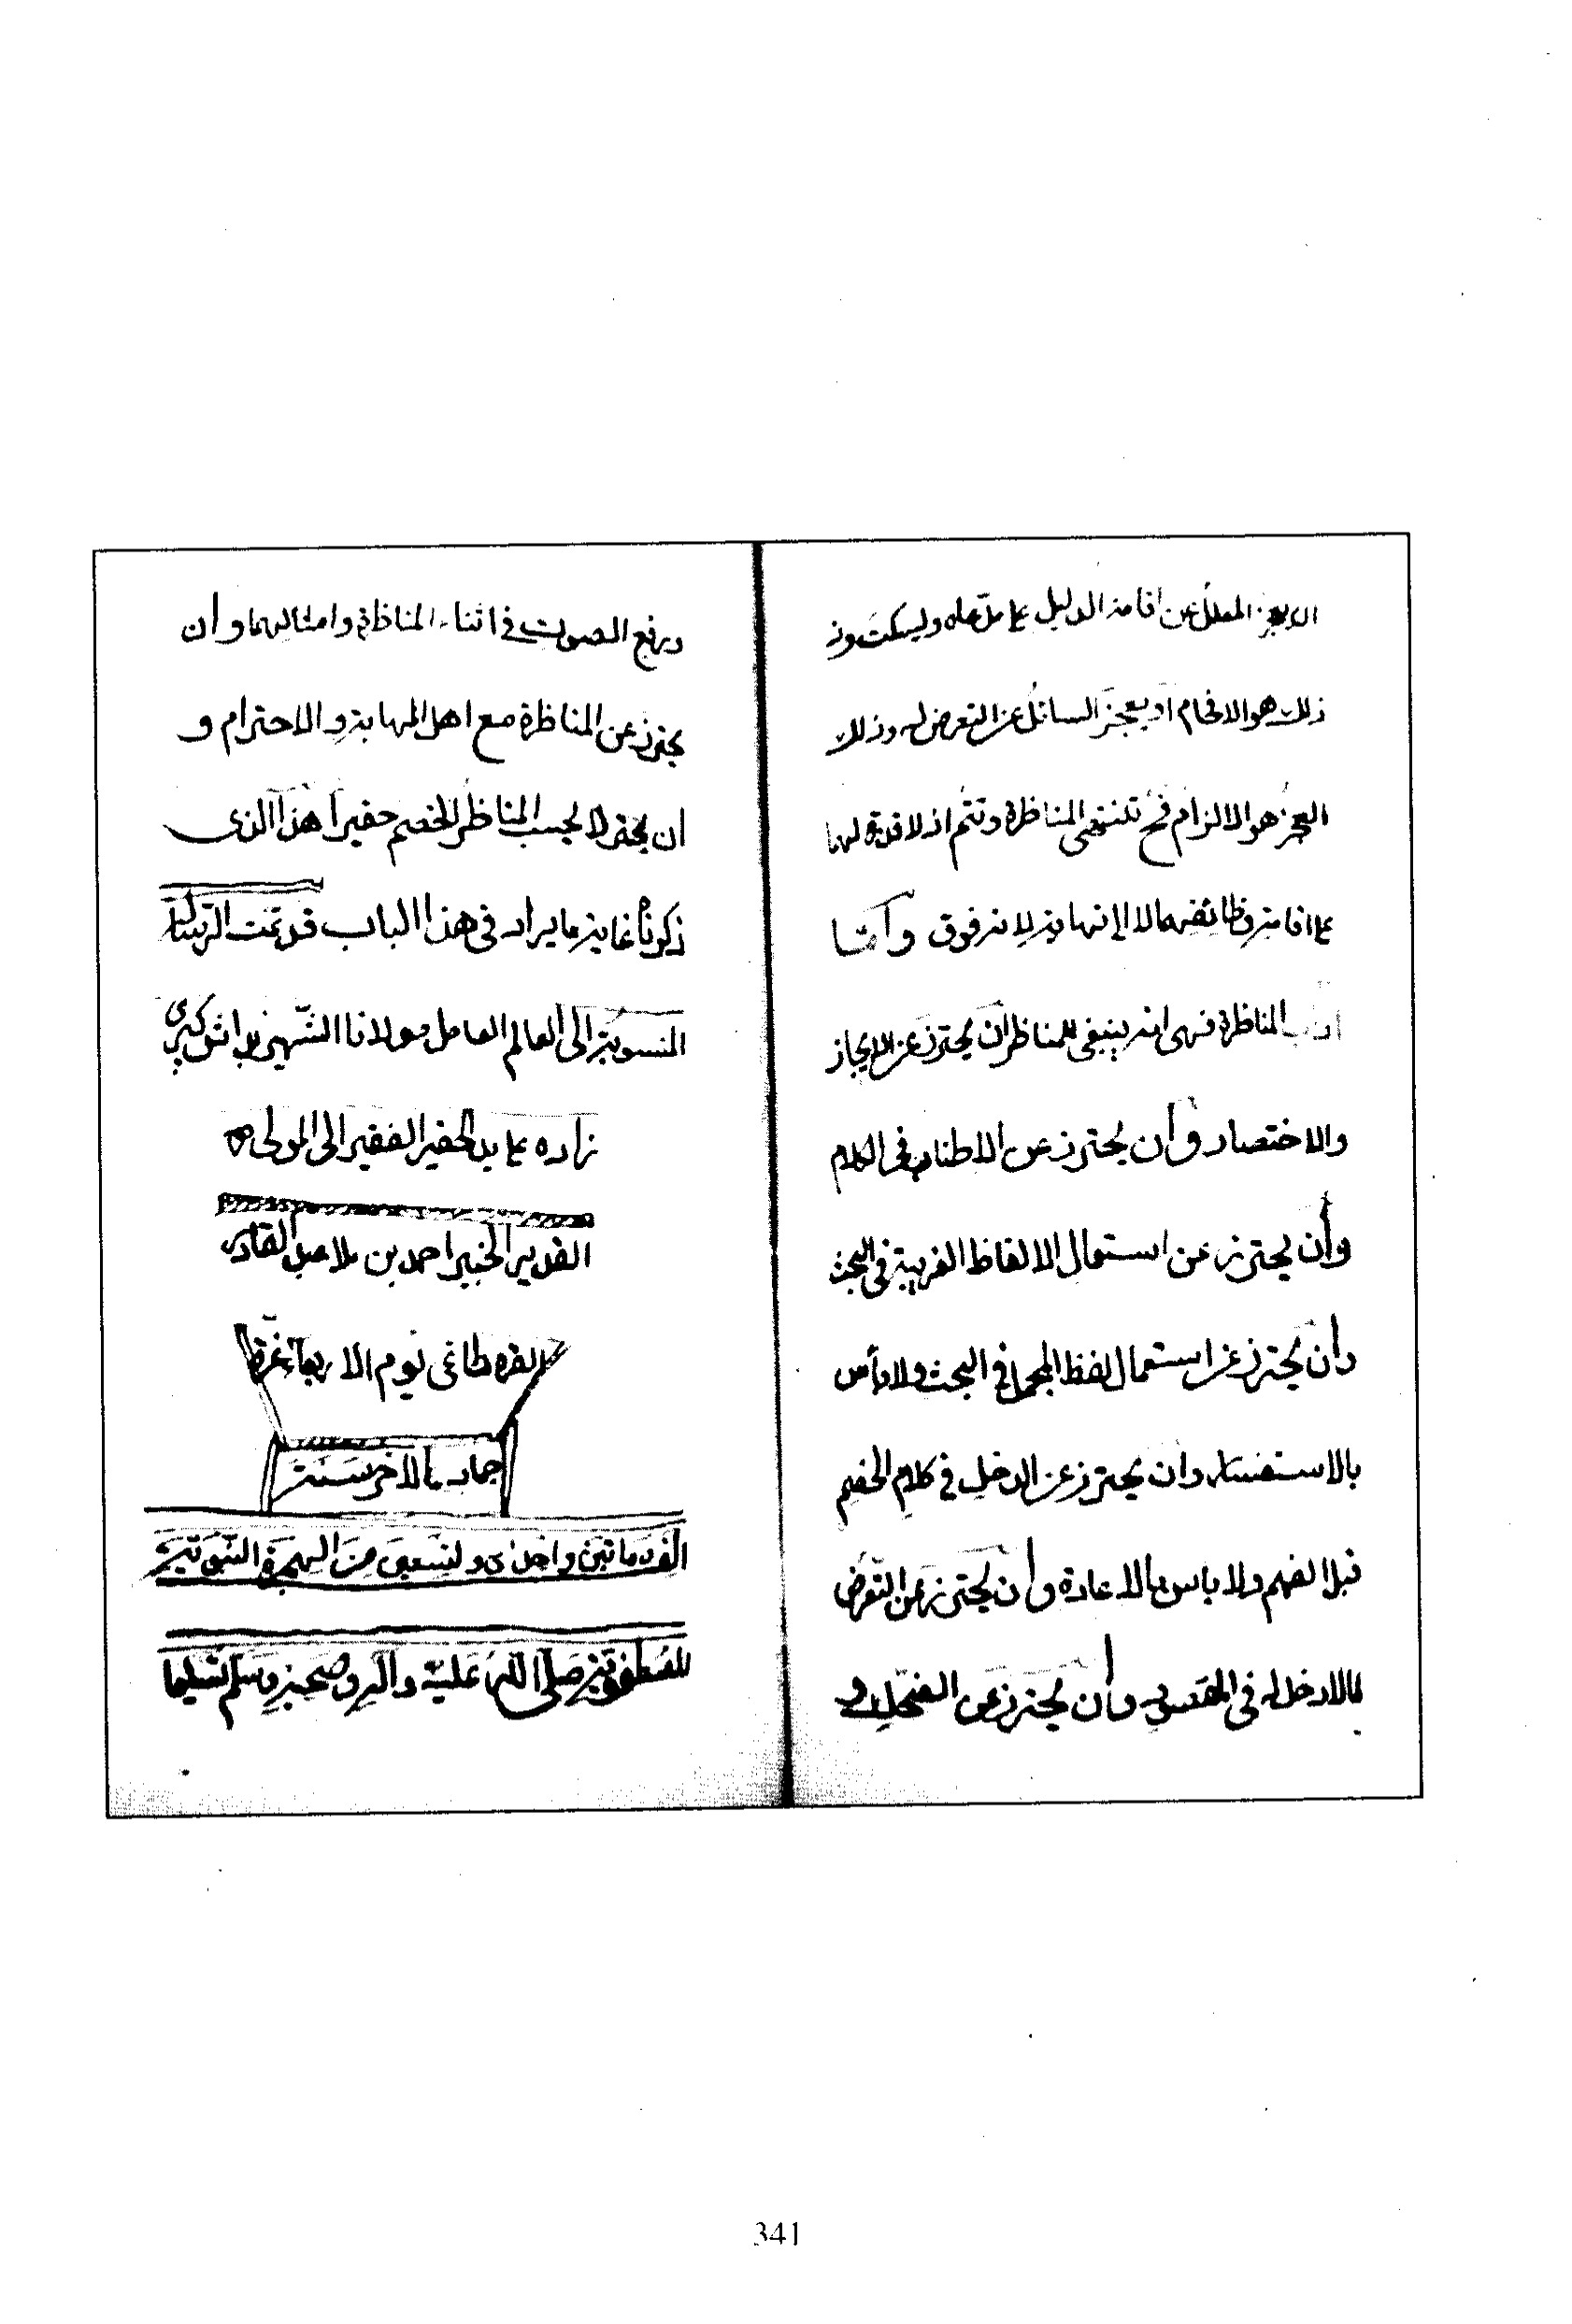 ان يعجز المعلل عن اقامة الدليل على مدعاه ويسكت و
ذلك هو الافحام او يعجز السائل عن التعرض له وذلك
العجز هو الالزام فح تنتهى المناظرة وتتم اذ لا قدرة لهما
على اقامة وظائفهما لا الى نهاية وامّا
المناظرة فهى انه ينبغى للمناظر ان يحترز عن الايجاز
والاختصار وأن يحترز عن الاطناب فى الكلام
وأن يحترز عن استعمال الالفاظ الغريبة فى البحث
وأن يحترز عن استعمال لفظ المجمل فى البحث ولا بأس
بالاستفسار وان يحترز عن الدخل فى كلام الخصم
قبل الفهم ولا باس بالاعادة وأن يحترز عن التعرض
لما لا دخل له فى المقصود وأن يحترز عن الضحك و
ورفع الصوت فى اثناء المناظرة وامثالهما وأن
يحترز عن المناظرة مع اهل المهابة والاحترام و
ان لا يحسب المناظر الخصم حقيرا هذا الذى
ذكرناه غاية ما يراد فى هذا الباب قد تمت الرسالة
المنسوبة الى العالم العامل مولانا الشهير بطاش كبرى
زاده على يد الحقير الفقير الى المولى
القدير الخبير احمد بن ملا عبد القادر
القره طاغى يوم الاربعاء غرة
جماد الآخر سنة
الف ومائتين واحدى وتسعين من الهجرة النبوية
المصطفوية صلى الله عليه وآله وصحبه وسلم تسليما
341